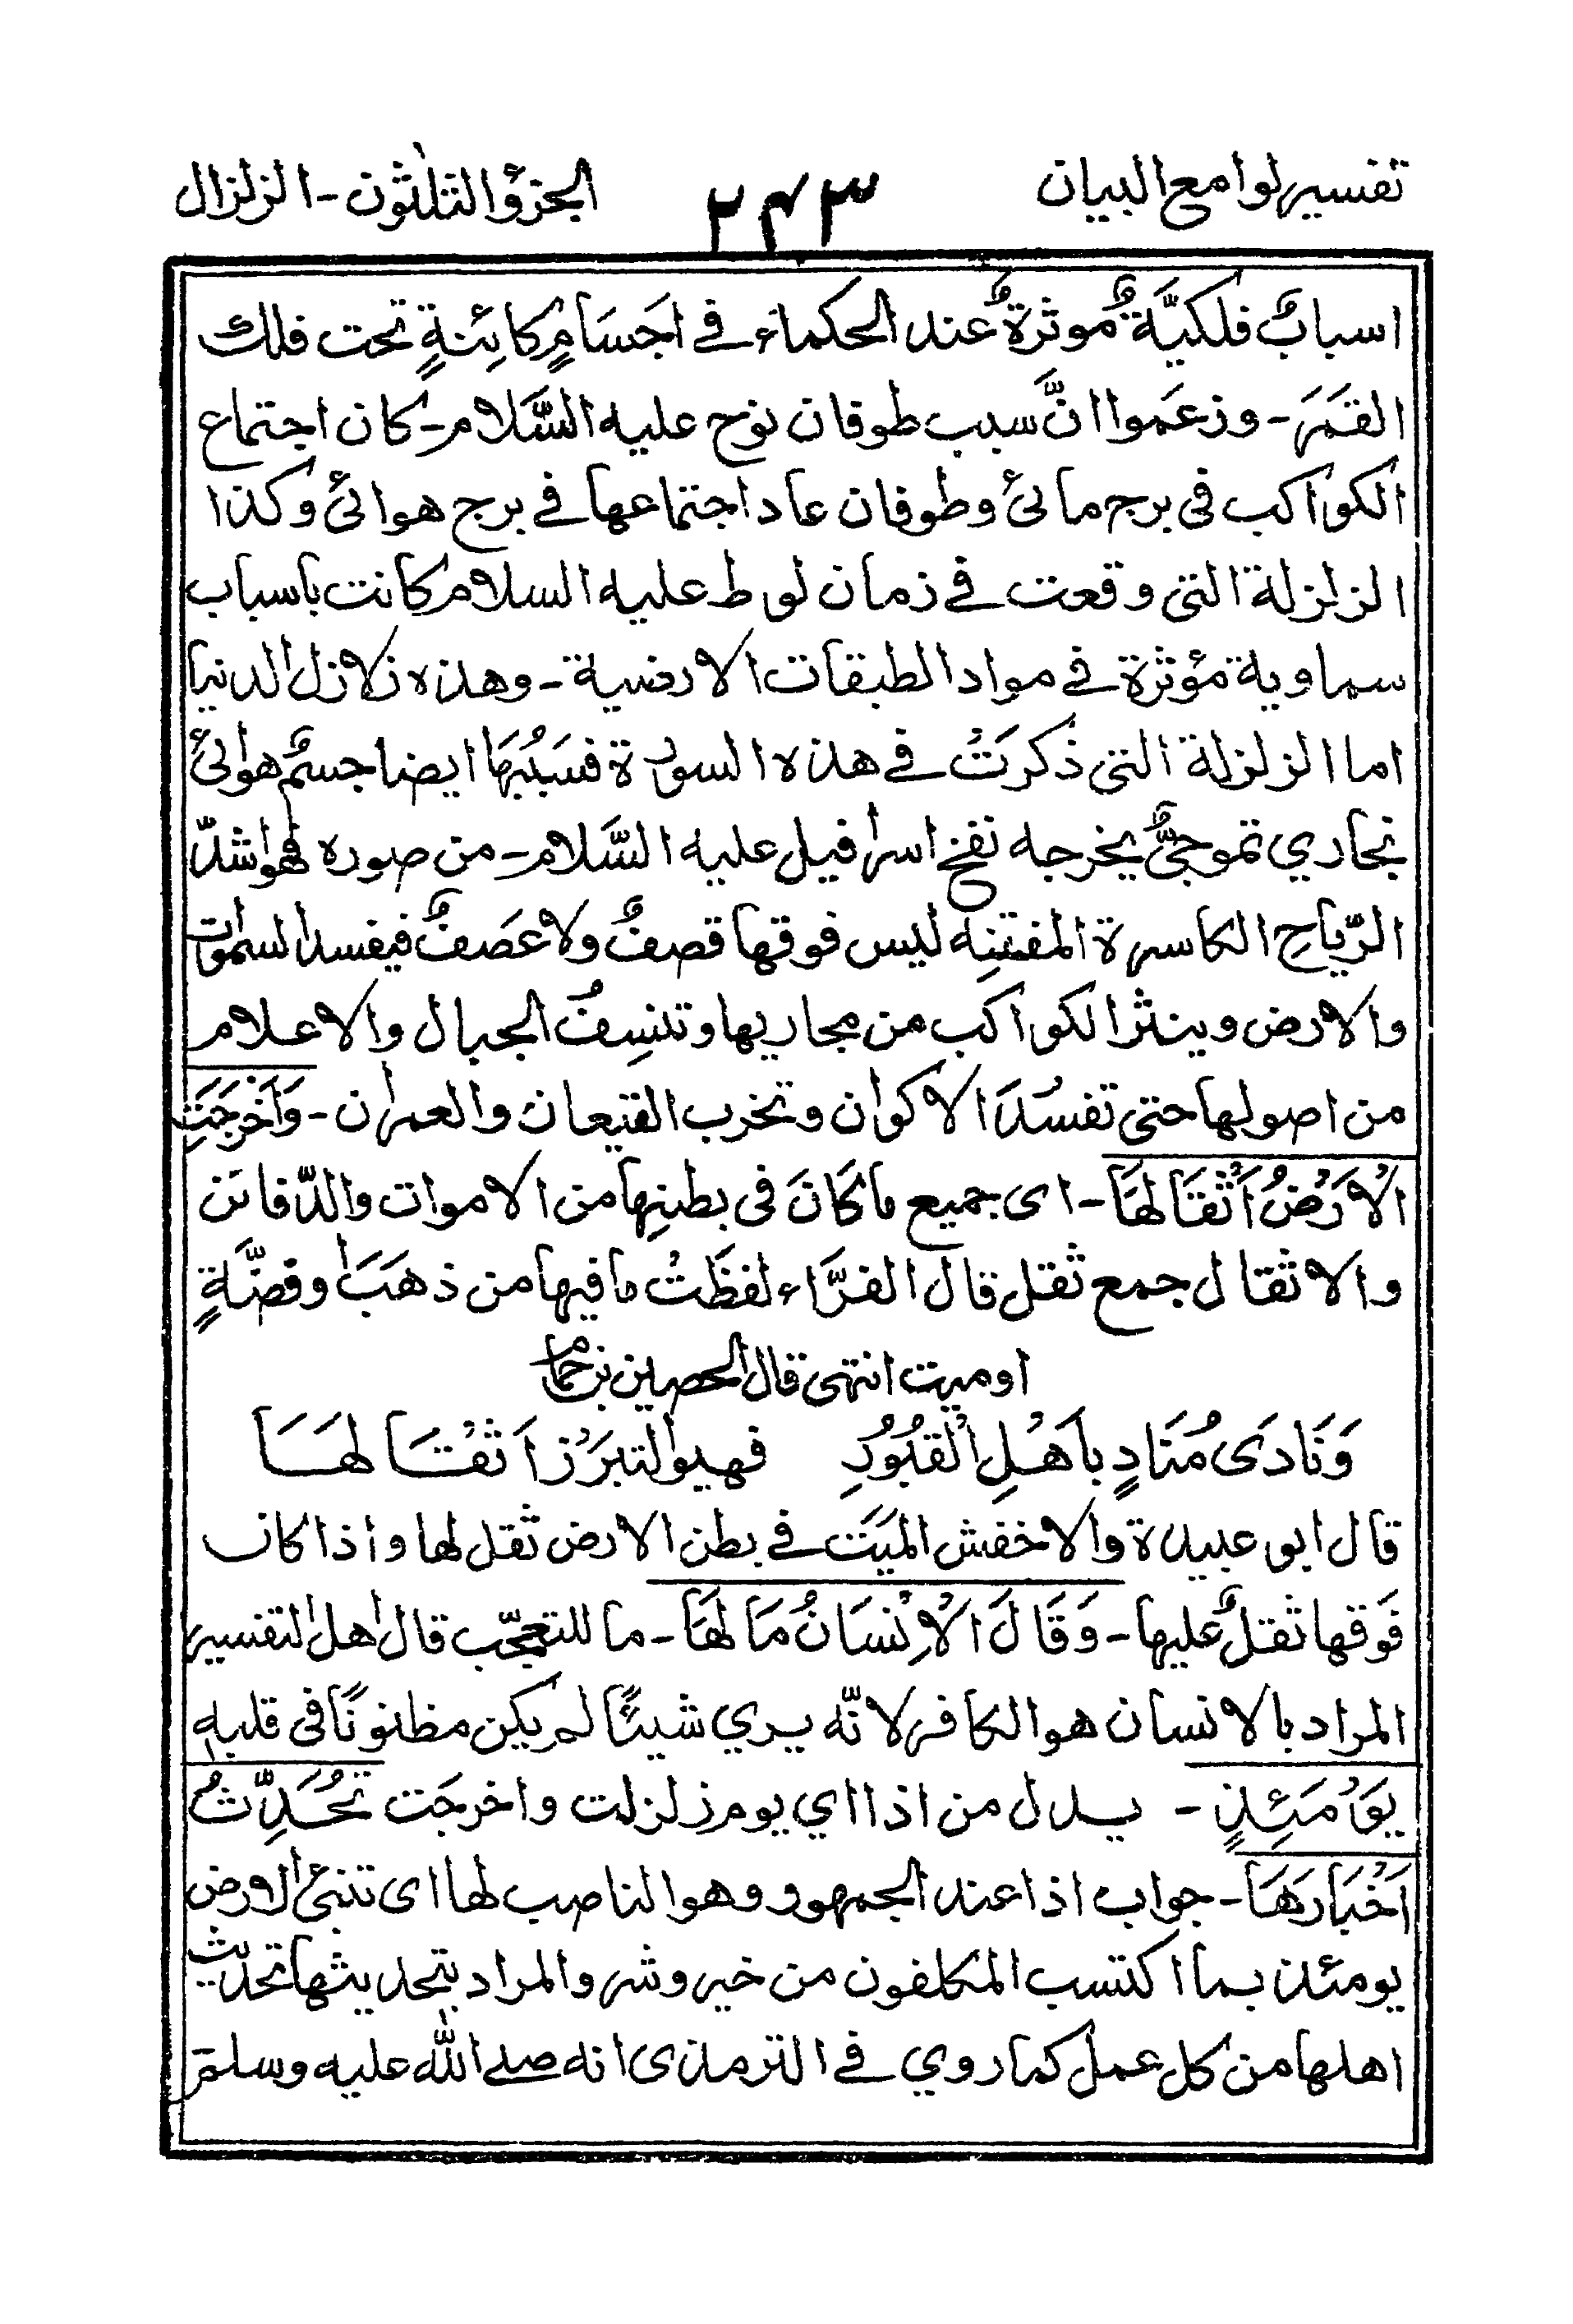 تفسير لوامع البيان
٢٤٣
الجزؤ الثلثون - الزلزال
اسبابٌ فلكيَّةٌ موثرةٌ عند الحكماء في اجسَامٍ كائِنةٍ تحت فلك
القمَر - وزعَموا انَّ سبب طوفان نوح عليه السَّلام - كان اجتماع
الكواكب في برج مائي وطوفان عاد اجتماعها في برج هوائي وكذا
الزلزلة التي وقعت في زمان لوط عليه السلام كانت باسباب
سماوية مؤثرة في مواد الطبقات الارضية - وهذه زلازل الدنيا
اما الزلزلة التي ذُكرَتْ في هذه السورة فسَبَبُهَا ايضا جسمٌ هوائيٌ
بخاري تموجيٌّ يخرجه نفخ اسرافيل عليه السَّلام - من صوره فهو اشدّ
الرّياح الكاسرة المفتنِه ليس فوقها قصفٌ ولا عَصَفٌ فيفسد السموات
والارض وينثر الكواكب من مجاريها وتنسِفُ الجبال والاعلام
من اصولها حتى تفسُدَ الاكوان وتخرب القيعان والعمران - وَاَخْرَجَتِ
الْاَرْضُ اَثْقَالَهَا - اى جميع ما كَانَ في بطنِها من الاموات والدّفائن
والاثقال جمع ثقل قال الفرَّاء لفظَتْ ما فيها من ذهَبَ وفضّةٍ
اوميت انتهى قال الحصين بن حمام
وَنَادَى مُنَادٍ بِاَهْلِ الْقُبُوْرِ فهيوا لتبرَزْ اَثقَالَهَا
قال ابو عبيدة والاخفش الميَت في بطن الارض ثقل لها واذا كان
فَوقها ثقلٌ عليها - وَقَالَ الْاِنْسَانُ مَا لَهَا - ما للتعجّب قال اهل التفسير
المراد بالانسان هو الكافر لانّه يري شيئًا لم يكن مظنونًا في قلبه
يَوْمَئِذٍ - بدل من اذا اي يوم زلزلت واخرجَت تُحَدِّثُ
اَخْبَارَهَا - جواب اذا عند الجمهور وهو الناصب لها اى تنبئ الارض
يومئذ بما اكتسب المكلفون من خير وشر والمراد بتحديثها تحديث
اهلها من كل عمل كما روي في الترمذى انه صلے الله عليه وسلم